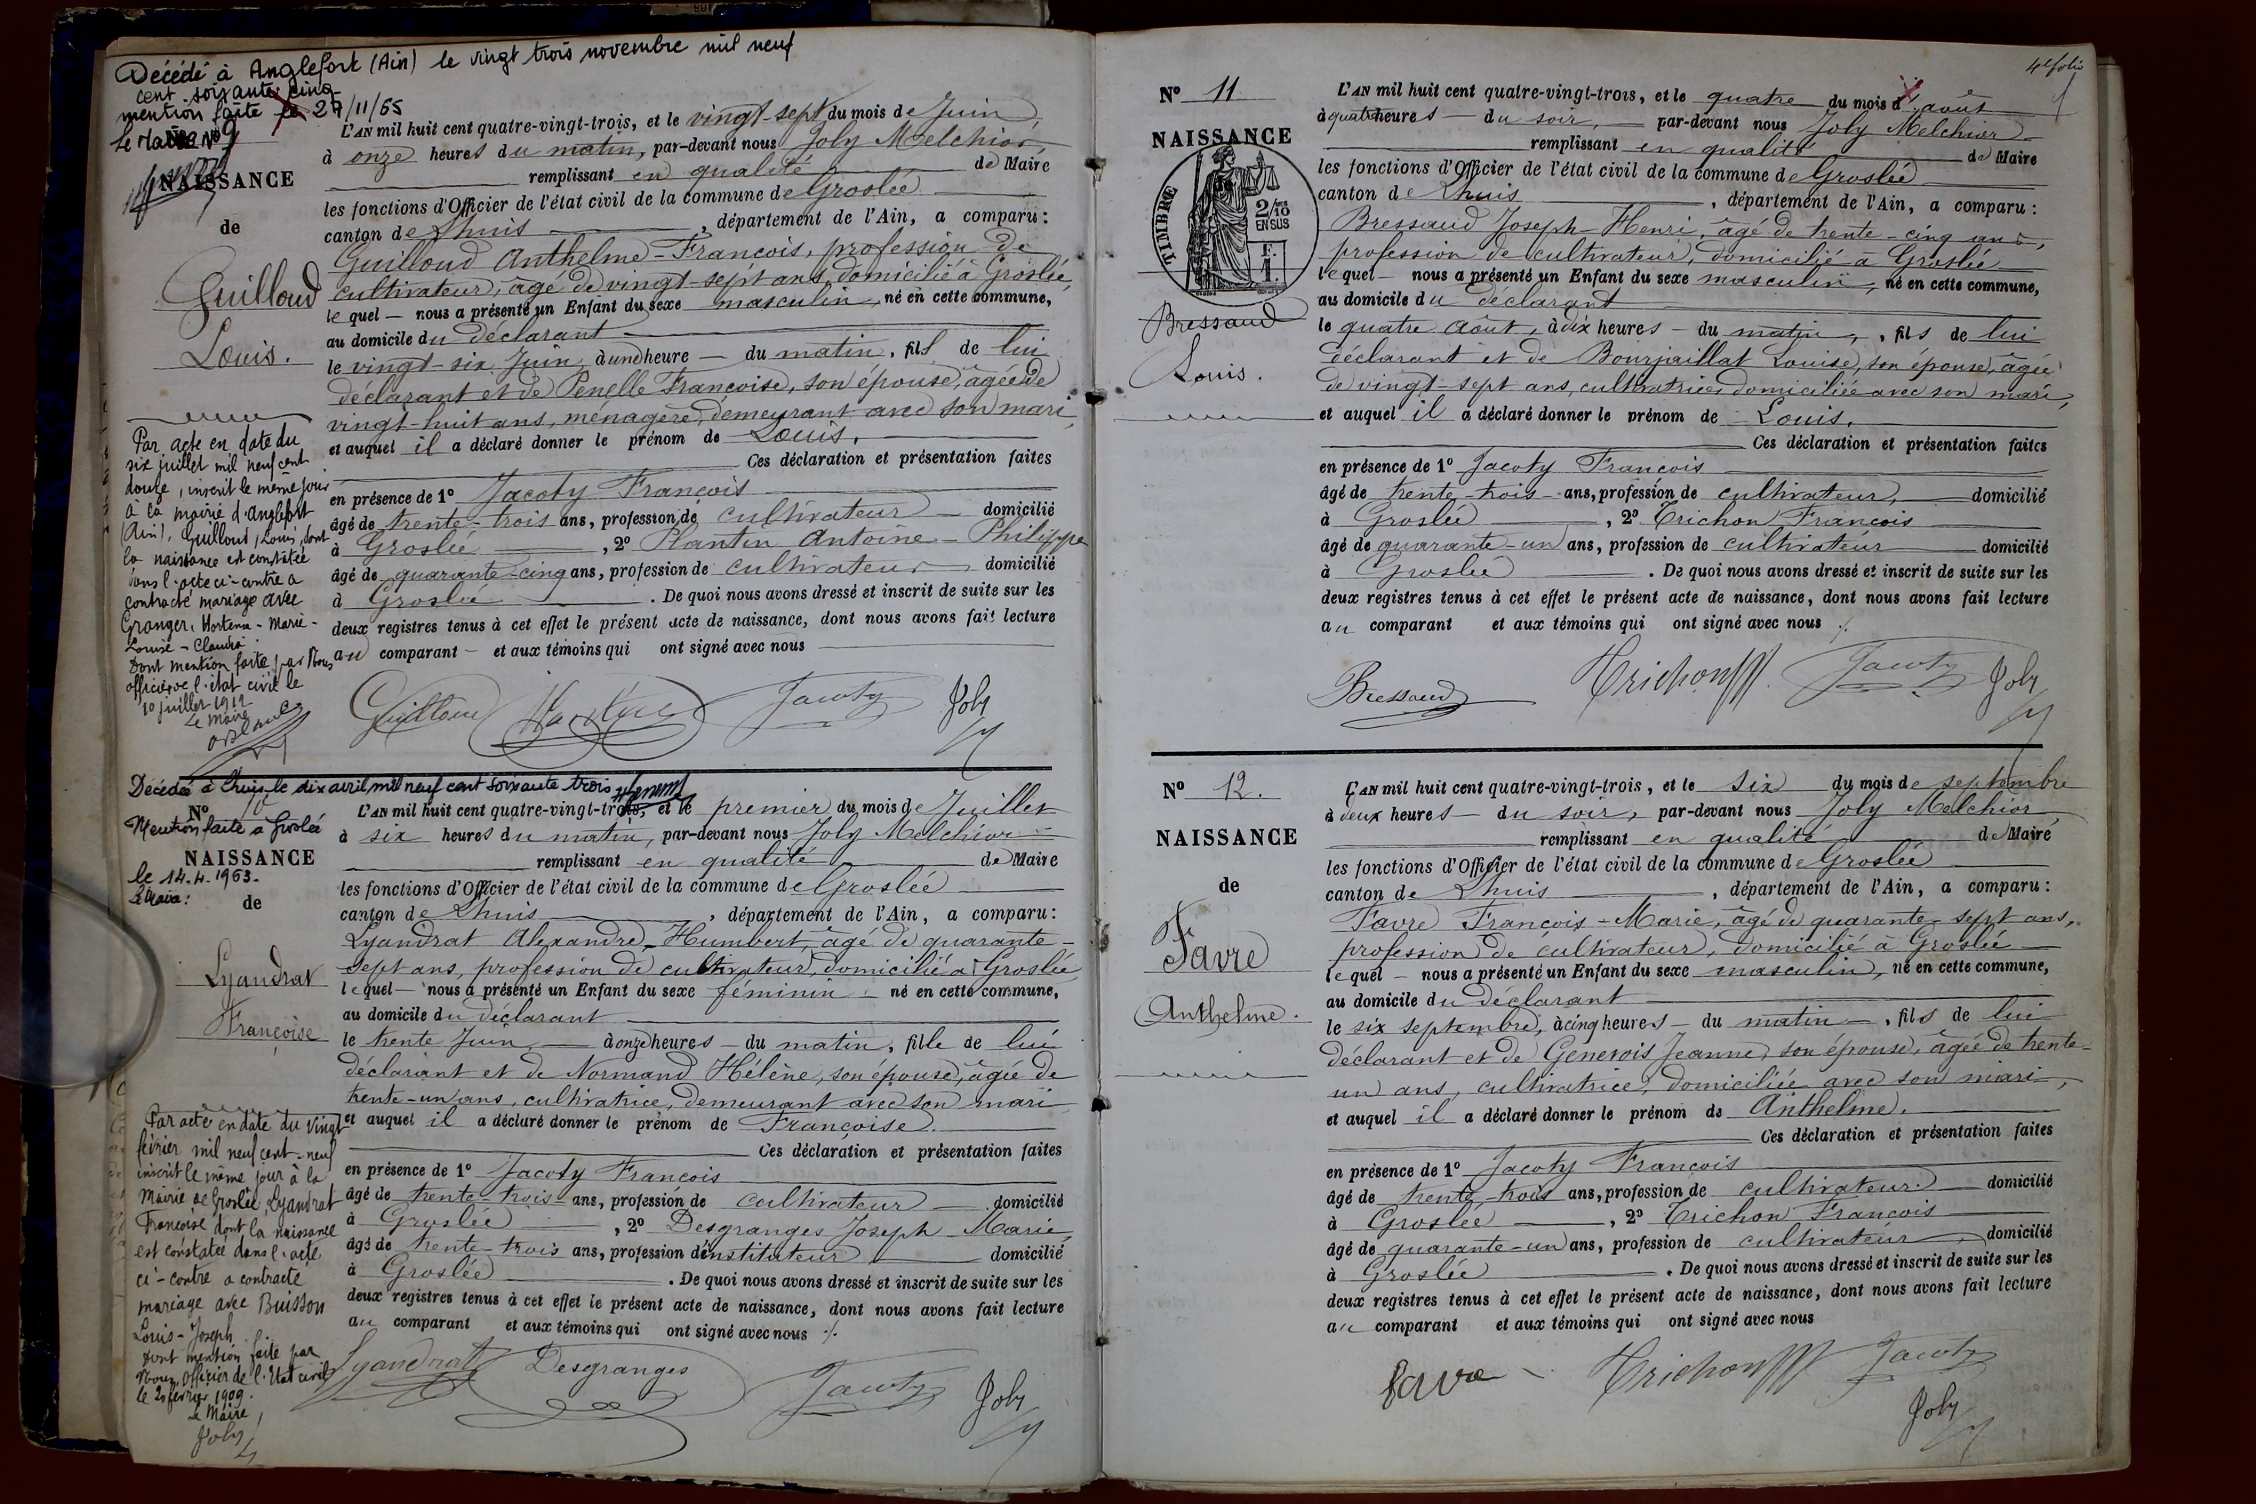 Décédé à Anglefort (Ain) le vingt trois novembre mil neuf
cent soixante cinq
mention faite le 27/11/65
Le Maire
No 9
NAISSANCE
de
Guilloud
Louis.
L'AN mil huit cent quatre-vingt-trois, et le vingt-sept du mois de Juin,
à onze heures du matin, par-devant nous Joly Melchior,
remplissant en qualité de Maire
les fonctions d'Officier de l'état civil de la commune de Groslée
canton de Lhuis, département de l'Ain, a comparu:
Guilloud Anthelme-François, profession de
cultivateur, âgé de vingt-sept ans, domicilié à Groslée,
lequel nous a présenté un Enfant du sexe masculin, né en cette commune,
au domicile du déclarant
le vingt-six Juin, à une heure du matin, fils de lui
déclarant et de Penelle Françoise, son épouse, âgée de
vingt-huit ans, ménagère, demeurant avec son mari,
et auquel il a déclaré donner le prénom de Louis.
Ces déclaration et présentation faites
en présence de 1º Jacoty François
âgé de trente-trois ans, profession de cultivateur domicilié
à Groslée, 2º Plantin Antoine-Philippe
âgé de quarante-cinq ans, profession de cultivateur domicilié
à Groslée. De quoi nous avons dressé et inscrit de suite sur les
deux registres tenus à cet effet le présent acte de naissance, dont nous avons fait lecture
au comparant et aux témoins qui ont signé avec nous
Guilloud Plantin Jacoty Joly
Par acte en date du
six juillet mil neuf cent
douze, inscrit le même jour
à la mairie d'Anglefort
(Ain), Guilloud, Louis, dont
la naissance est constatée
dans l'acte ci-contre a
contracté mariage avec
Granger, Hortense-Marie-
Louise-Claudia.
Dont mention faite par Nous
officier de l'état civil le
10 juillet 1912
Le Maire
Décédée à Lhuis le six avril mil neuf cent soixante trois
Mention faite à Groslée
le 14.4.1963.
Le Maire:
No 10
NAISSANCE
de
Lyandrat
Françoise
L'AN mil huit cent quatre-vingt-trois, et le premier du mois de Juillet
à six heures du matin, par-devant nous Joly Melchior
remplissant en qualité de Maire
les fonctions d'Officier de l'état civil de la commune de Groslée
canton de Lhuis, département de l'Ain, a comparu:
Lyandrat Alexandre-Humbert, âgé de quarante-
sept ans, profession de cultivateur, domicilié à Groslée
lequel nous a présenté un Enfant du sexe féminin né en cette commune,
au domicile du déclarant
le trente Juin à onze heures du matin, fille de lui
déclarant et de Normand Hélène, son épouse, âgée de
trente-un ans, cultivatrice, demeurant avec son mari
et auquel il a déclaré donner le prénom de Françoise.
Ces déclaration et présentation faites
en présence de 1º Jacoty François
âgé de trente-trois ans, profession de cultivateur domicilié
à Groslée, 2º Desgranges Joseph-Marie,
âgé de trente-trois ans, profession d'instituteur domicilié
à Groslée. De quoi nous avons dressé et inscrit de suite sur les
deux registres tenus à cet effet le présent acte de naissance, dont nous avons fait lecture
au comparant et aux témoins qui ont signé avec nous ./.
Lyandrat Desgranges Jacoty Joly
Par acte en date du vingt
février mil neuf cent-neuf
inscrit le même jour à la
Mairie de Groslée, Lyandrat
Françoise dont la naissance
est constatée dans l'acte
ci-contre a contracté
mariage avec Buisson
Louis-Joseph.
Dont mention faite par
Nous, Officier de l'Etat civil
le 20 février 1909.
Le Maire,
Joly
4e folio
No 11
NAISSANCE
TIMBRE
2/10 EN SUS
Bressaud
Louis.
L'AN mil huit cent quatre-vingt-trois, et le quatre du mois d'août
à quatre heures du soir, par-devant nous Joly Melchior
remplissant en qualité de Maire
les fonctions d'Officier de l'état civil de la commune de Groslée
canton de Lhuis, département de l'Ain, a comparu:
Bressaud Joseph-Henri, âgé de trente-cinq ans,
profession de cultivateur, domicilié à Groslée
lequel nous a présenté un Enfant du sexe masculin, né en cette commune,
au domicile du déclarant
le quatre août, à dix heures du matin, fils de lui
déclarant et de Bourjaillat Louise, son épouse, âgée
de vingt-sept ans, cultivatrice, domiciliée avec son mari,
et auquel il a déclaré donner le prénom de Louis.
Ces déclaration et présentation faites
en présence de 1º Jacoty François
âgé de trente-trois ans, profession de cultivateur, domicilié
à Groslée, 2º Trichon François
âgé de quarante-un ans, profession de cultivateur domicilié
à Groslée. De quoi nous avons dressé et inscrit de suite sur les
deux registres tenus à cet effet le présent acte de naissance, dont nous avons fait lecture
au comparant et aux témoins qui ont signé avec nous ./.
Bressaud Trichon Jacoty Joly
No 12.
NAISSANCE
de
Favre
Anthelme.
L'AN mil huit cent quatre-vingt-trois, et le six du mois de septembre
à deux heures du soir, par-devant nous Joly Melchior
remplissant en qualité de Maire
les fonctions d'Officier de l'état civil de la commune de Groslée
canton de Lhuis, département de l'Ain, a comparu:
Favre François-Marie, âgé de quarante-sept ans,
profession de cultivateur, domicilié à Groslée
lequel nous a présenté un Enfant du sexe masculin, né en cette commune,
au domicile du déclarant
le six septembre, à cinq heures du matin, fils de lui
déclarant et de Generois Jeanne, son épouse, âgée de trente-
un ans, cultivatrice, domiciliée avec son mari,
et auquel il a déclaré donner le prénom de Anthelme.
Ces déclaration et présentation faites
en présence de 1º Jacoty François
âgé de trente-trois ans, profession de cultivateur domicilié
à Groslée, 2º Trichon François
âgé de quarante-un ans, profession de cultivateur, domicilié
à Groslée. De quoi nous avons dressé et inscrit de suite sur les
deux registres tenus à cet effet le présent acte de naissance, dont nous avons fait lecture
au comparant et aux témoins qui ont signé avec nous
favre Trichon Jacoty
Joly